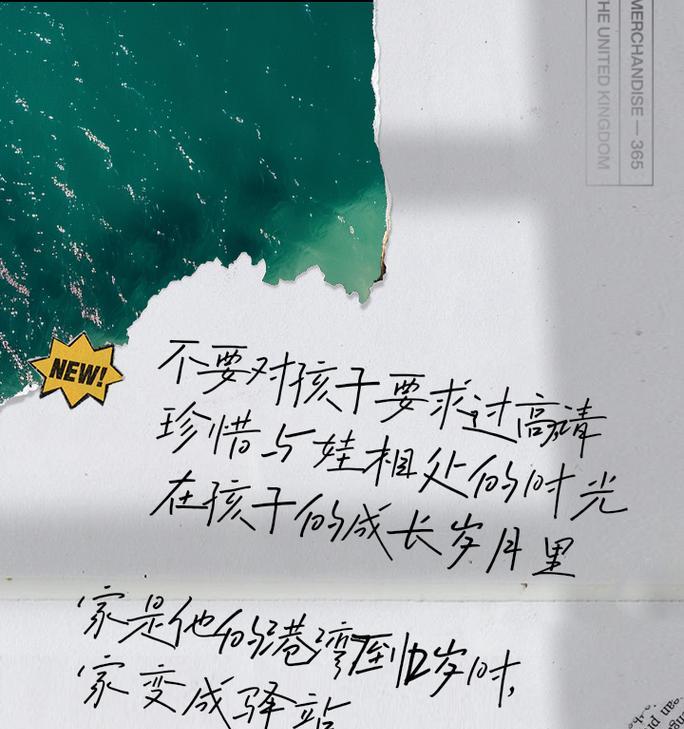 MERCHANDISE — 365
THE UNITED KINGDOM
NEW!
不要对孩子要求过高请
珍惜与娃相处的时光
在孩子的成长岁月里
家是他的港湾到12岁时,
家变成驿站